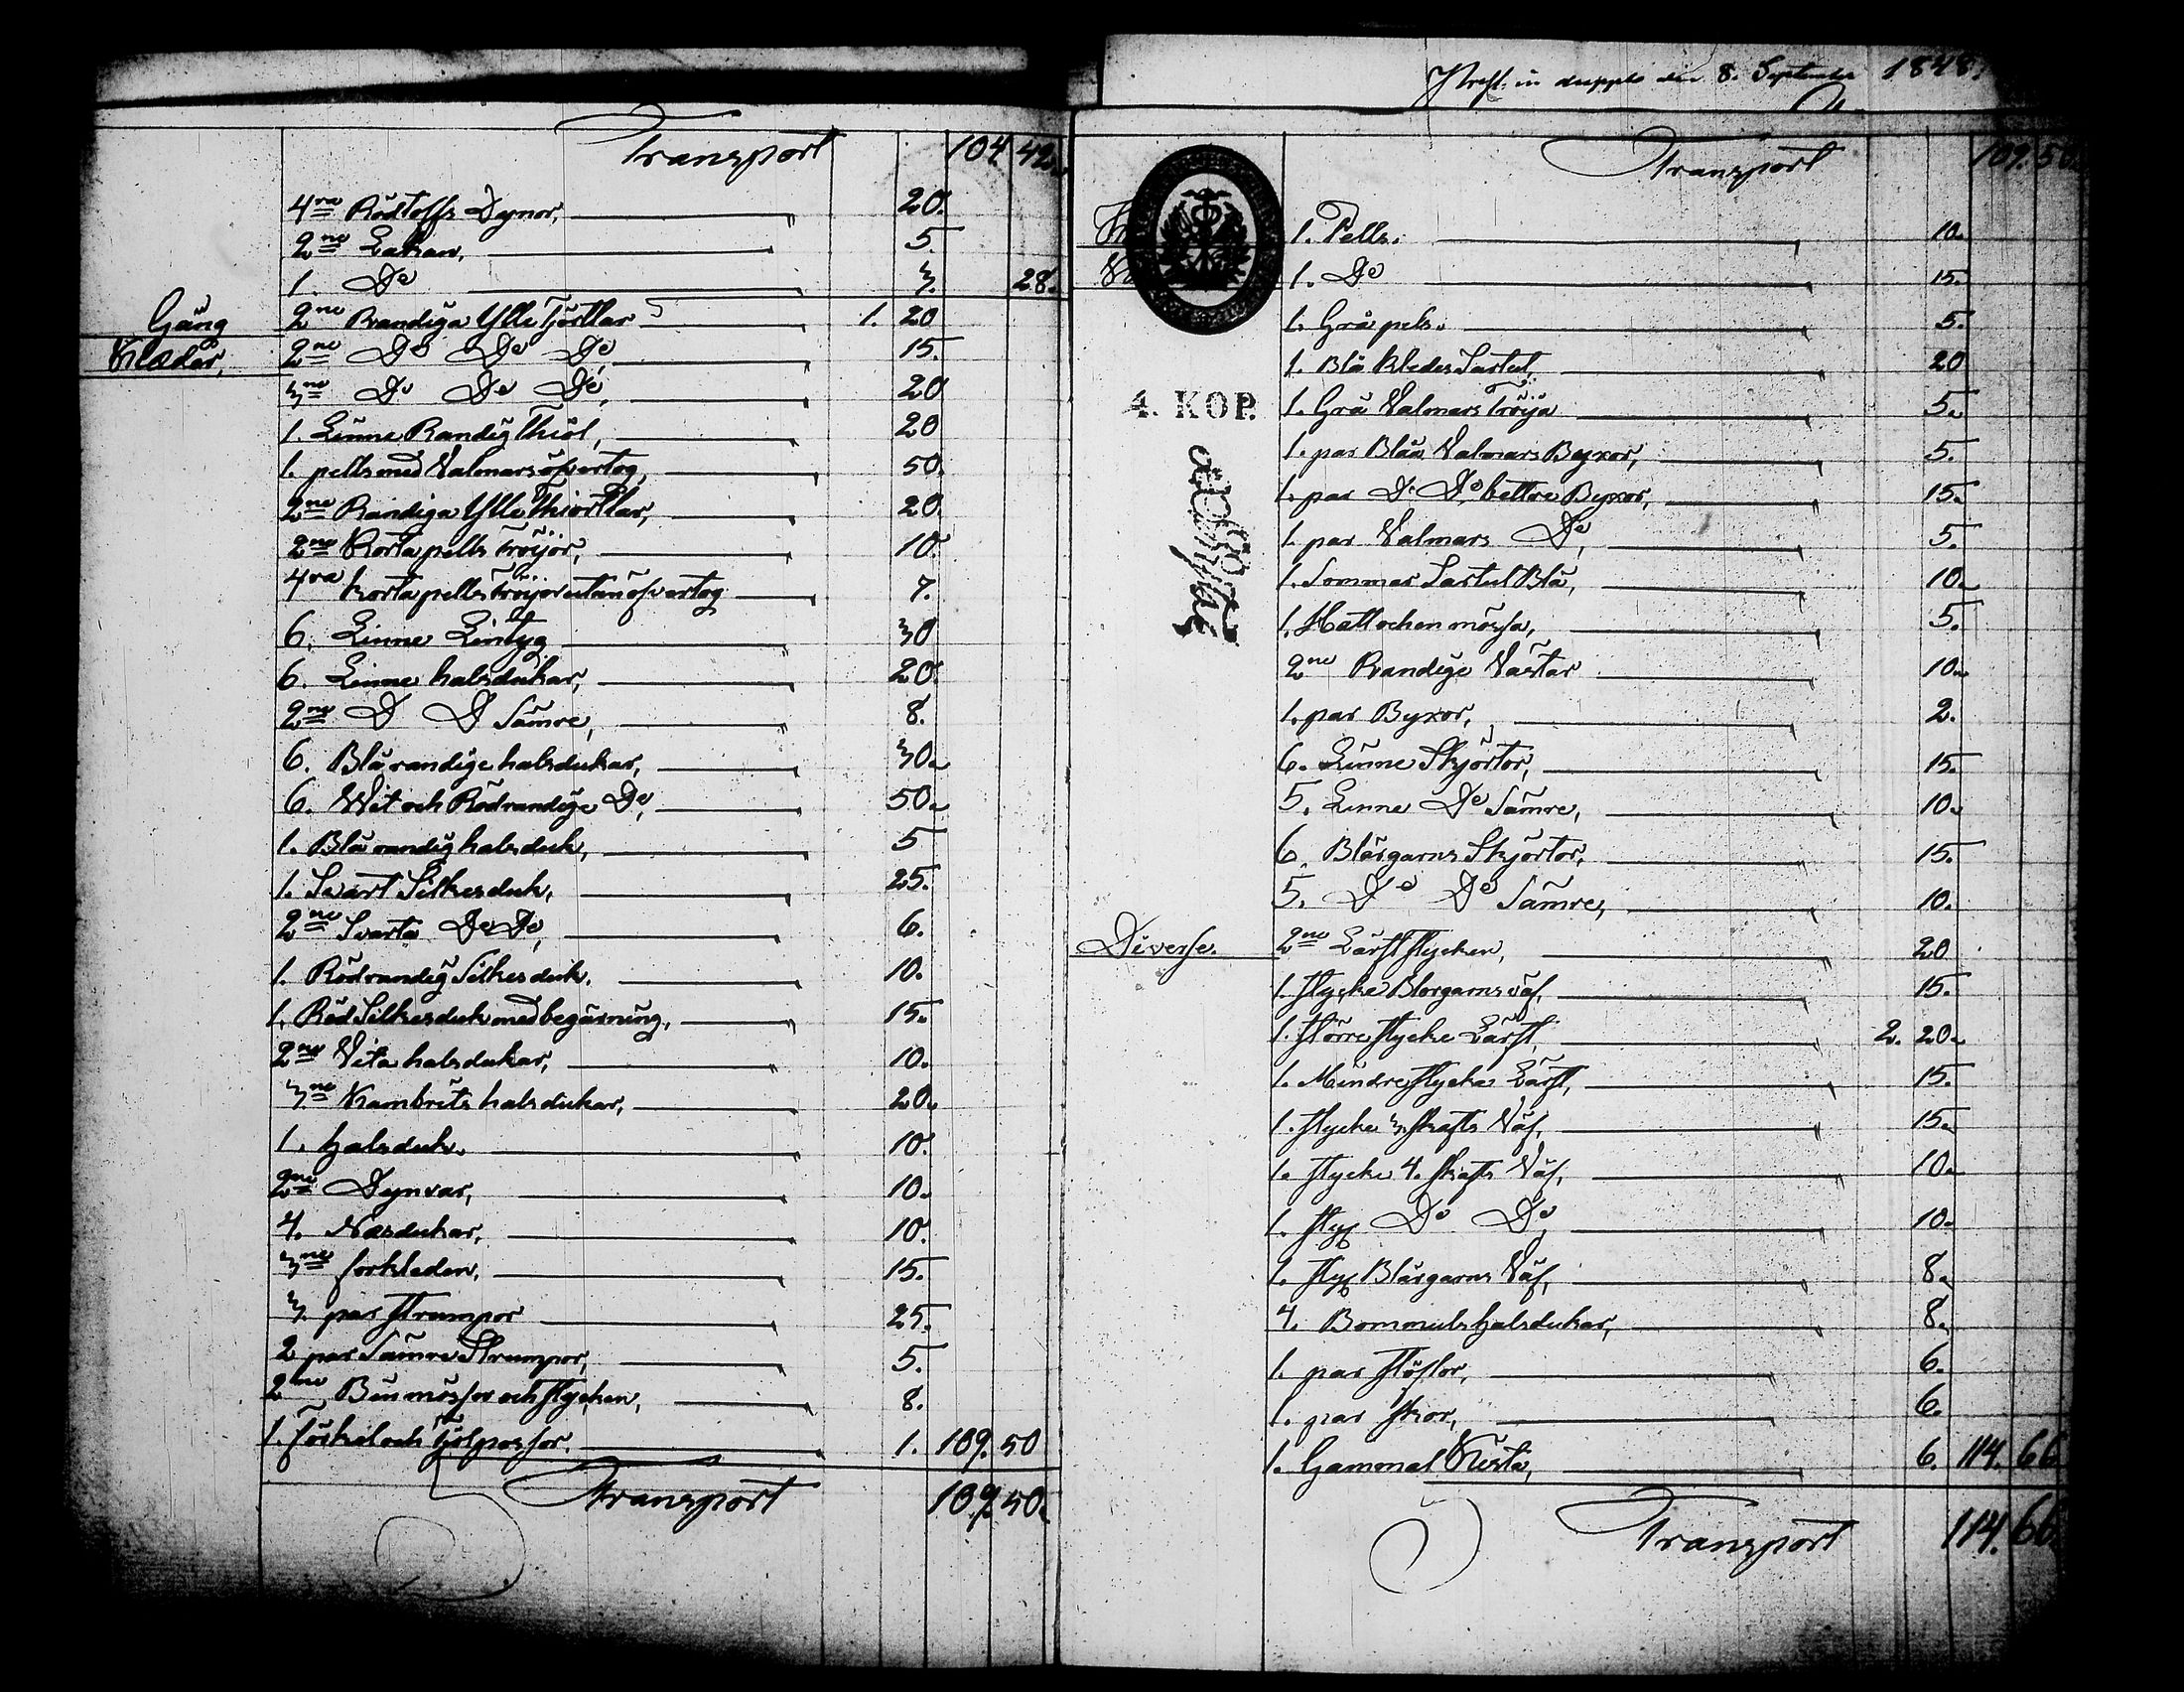 Transport 104 42.
4ra Rödtofs Dynor, 20.
2ne Lakan, 5.
1. Do 3. 28.
Gång 2ne Randiga Ylle Tjortlar 1. 20
Kläder, 2ne Do Do Do, 15.
3ne Do Do Do, 20
1. Linne Randig Thiol, 20
1. pells med Valmars öfvertog, 50.
2ne Randiga Ylle Thiortlar, 20.
2ne Korta pells Tröijor, 10.
4ra korta pells Tröijor utan öfvertog 7.
6. Linne Lintyg 30
6. Linne halsdukar, 20.
2ne D D Sämre, 8.
6. Blå randige halsdukar, 30.
6. Wit och Rödrandige Do, 50.
1. Blå randig halsduk, 5
1. Svart Silkesduk, 25.
2ne Svarta Do Do, 6.
1. Rödrandig Silkesduk. 10.
1. Röd Silkesduk med begärning, 15.
2ne Vita halsdukar, 10.
3ne Kambrits halsdukar, 20.
1. halsduk. 10.
2ne Dynvar, 10.
4. Näsdukar, 10.
3ne forkleden, 15.
3. par strumpor 25.
2 par Sämre Strumpor, 5.
2ne Bin mössor och stycken, 8.
1. Förkel och Kjolpossor. 1. 109. 50
Transport 109. 50.
in duplo den 8. September 1848.
Transport 109. 50.
1. Pells. 10.
1. Do 15.
1. Grå pels. 5.
1. Blå Kledes Sartut, 20
4. KOP. 1. Grå Valmars Tröija 5.
1. par Blåa Valmars Byxor, 5.
1. par Do Do bettre Byxor, 15.
1. par Valmars Do, 5.
1. Sommar Sartut Blå, 10.
1. Hatt och en mössa, 5.
2ne Randige Västar 10.
1. par Byxor, 2.
6. Linne Skjörtor, 15.
5. Linne Do Sämre, 10.
6. Blårgarns Skjörtor, 15.
5. Do Do Sämre, 10.
Diverse. 2ne Lärft stycken, 20
1. stycke Blorgarns väf, 15.
1. större stycke Lärft, 2. 20.
1. Mindre stycke Lärft, 15.
1. stycke 3. skafts Väf, 15.
1. stycke 4. skafts Väf, 10.
1. styc Do Do 10.
1. styc Blårgarns Väf, 8.
4. Bommuls halsdukar, 8.
1. par stöflor, 6.
1. par skor, 6.
1. Gammal Kista, 6. 114. 66
Transport 114. 66.